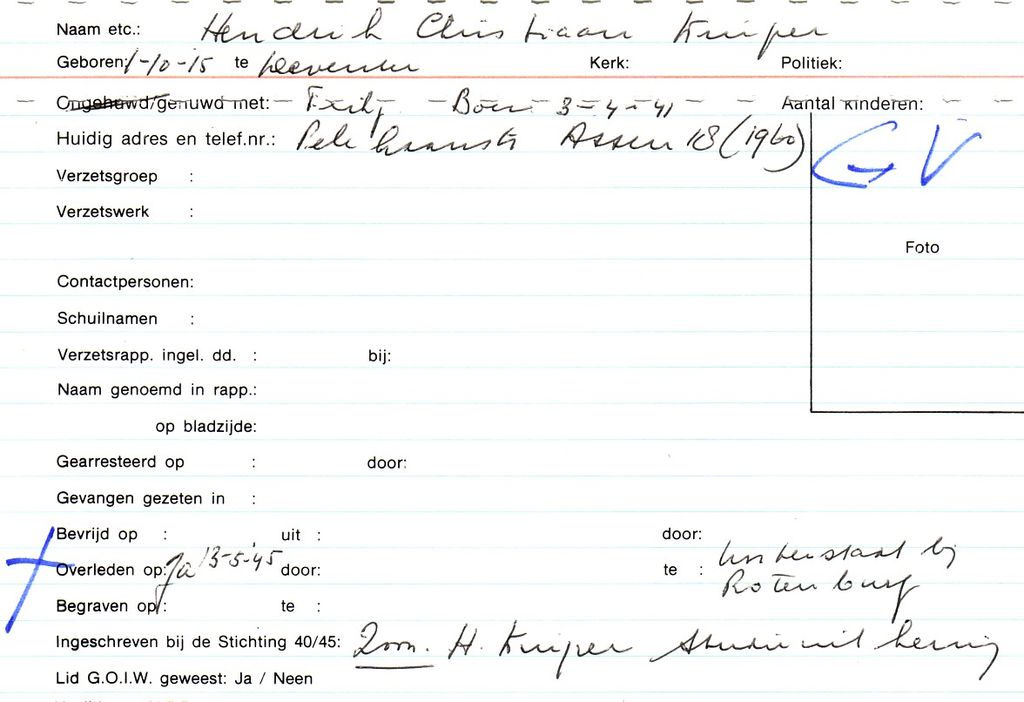 Naam etc.: Hendrik Christiaan Kuiper
Geboren: 1-10-15 te Deventer Kerk: Politiek:
Ongehuwd/gehuwd met: Boer 3-4-41 Aantal kinderen:
Huidig adres en telef.nr.: Assen 18 (1960) GV
Verzetsgroep :
Verzetswerk :
Foto
Contactpersonen:
Schuilnamen :
Verzetsrapp. ingel. dd. : bij:
Naam genoemd in rapp.:
op bladzijde:
Gearresteerd op : door:
Gevangen gezeten in :
Bevrijd op : uit : door:
Overleden op: Ja 13-5-'45 door: te : Unterstaat bij
Rotenburg
Begraven op : te :
Ingeschreven bij de Stichting 40/45: Zoon. H. Kuiper
Lid G.O.I.W. geweest: Ja / Neen